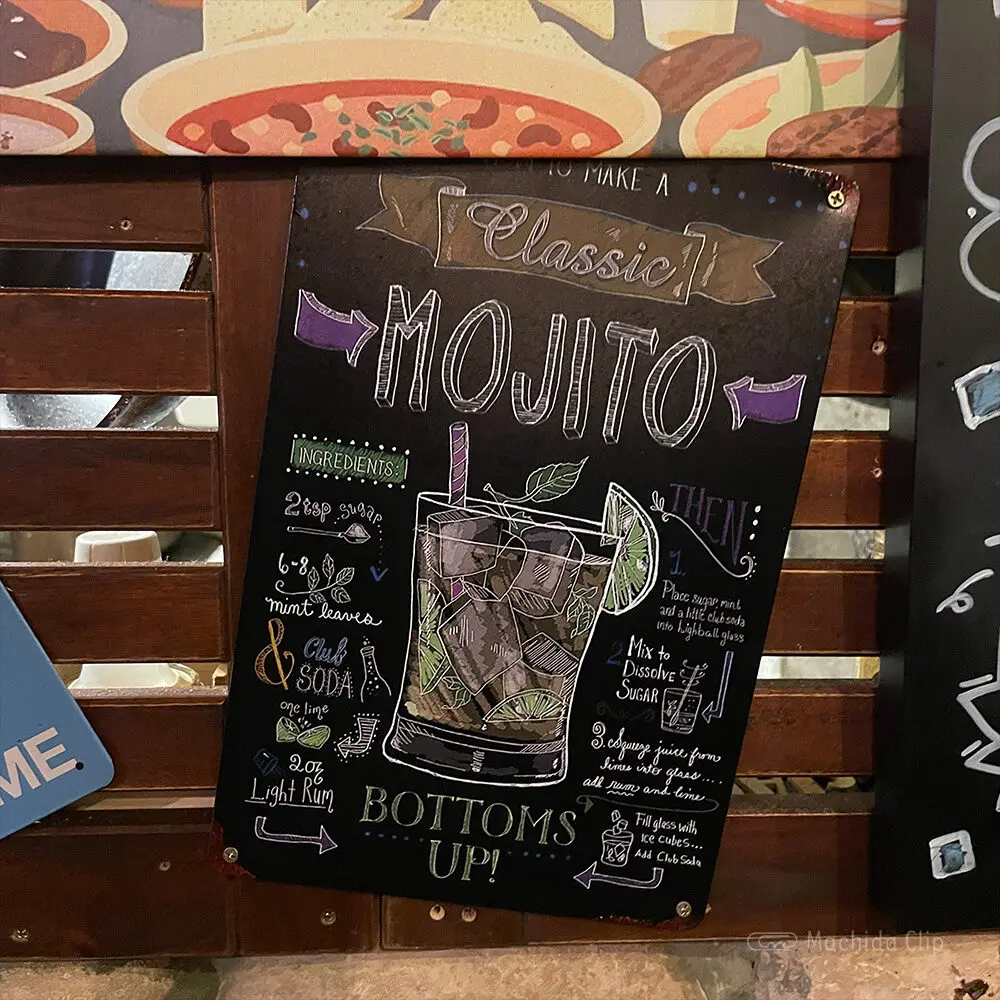 TO MAKE A
Classic
MOJITO
INGREDIENTS:
2tsp sugar
6-8
mint leaves
& Club
SODA
one lime
2oz
Light Rum
BOTTOMS
UP!
THEN
1.
Place sugar, mint
and a little club soda
into highball glass
2. Mix to
Dissolve
Sugar
3. Squeeze juice from
limes into glass....
add rum and lime
Fill glass with
ice cubes...
Add Club Soda
ME
Machida Clip